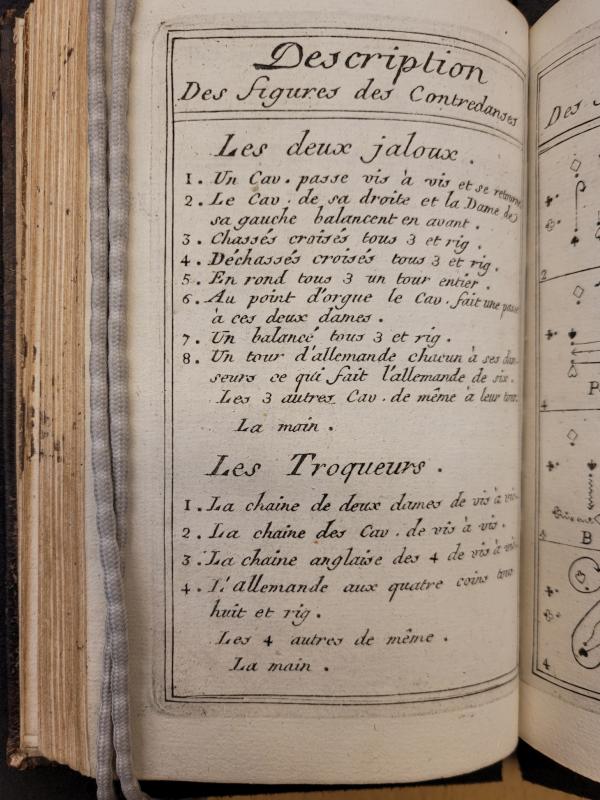 Description
Des figures des Contredanses
Les deux jaloux.
1. Un Cav. passe vis à vis et se retourne
2. Le Cav. de sa droite et la Dame de
sa gauche balancent en avant.
3. Chassés croisés tous 3 et rig.
4. Déchassés croisés tous 3 et rig.
5. En rond tous 3 un tour entier.
6. Au point d'orgue le Cav. fait une passe
à ces deux dames.
7. Un balancé tous 3 et rig.
8. Un tour d'allemande chacun à ses dan-
seurs ce qui fait l'allemande de six.
Les 3 autres Cav. de même à leur tour.
La main.
Les Troqueurs.
1. La chaine de deux dames de vis à vis.
2. La chaine des Cav. de vis à vis.
3. La chaine anglaise des 4 de vis à vis.
4. L'allemande aux quatre coins tous
huit et rig.
Les 4 autres de même.
La main.
Des
2
4
P
5
B
4